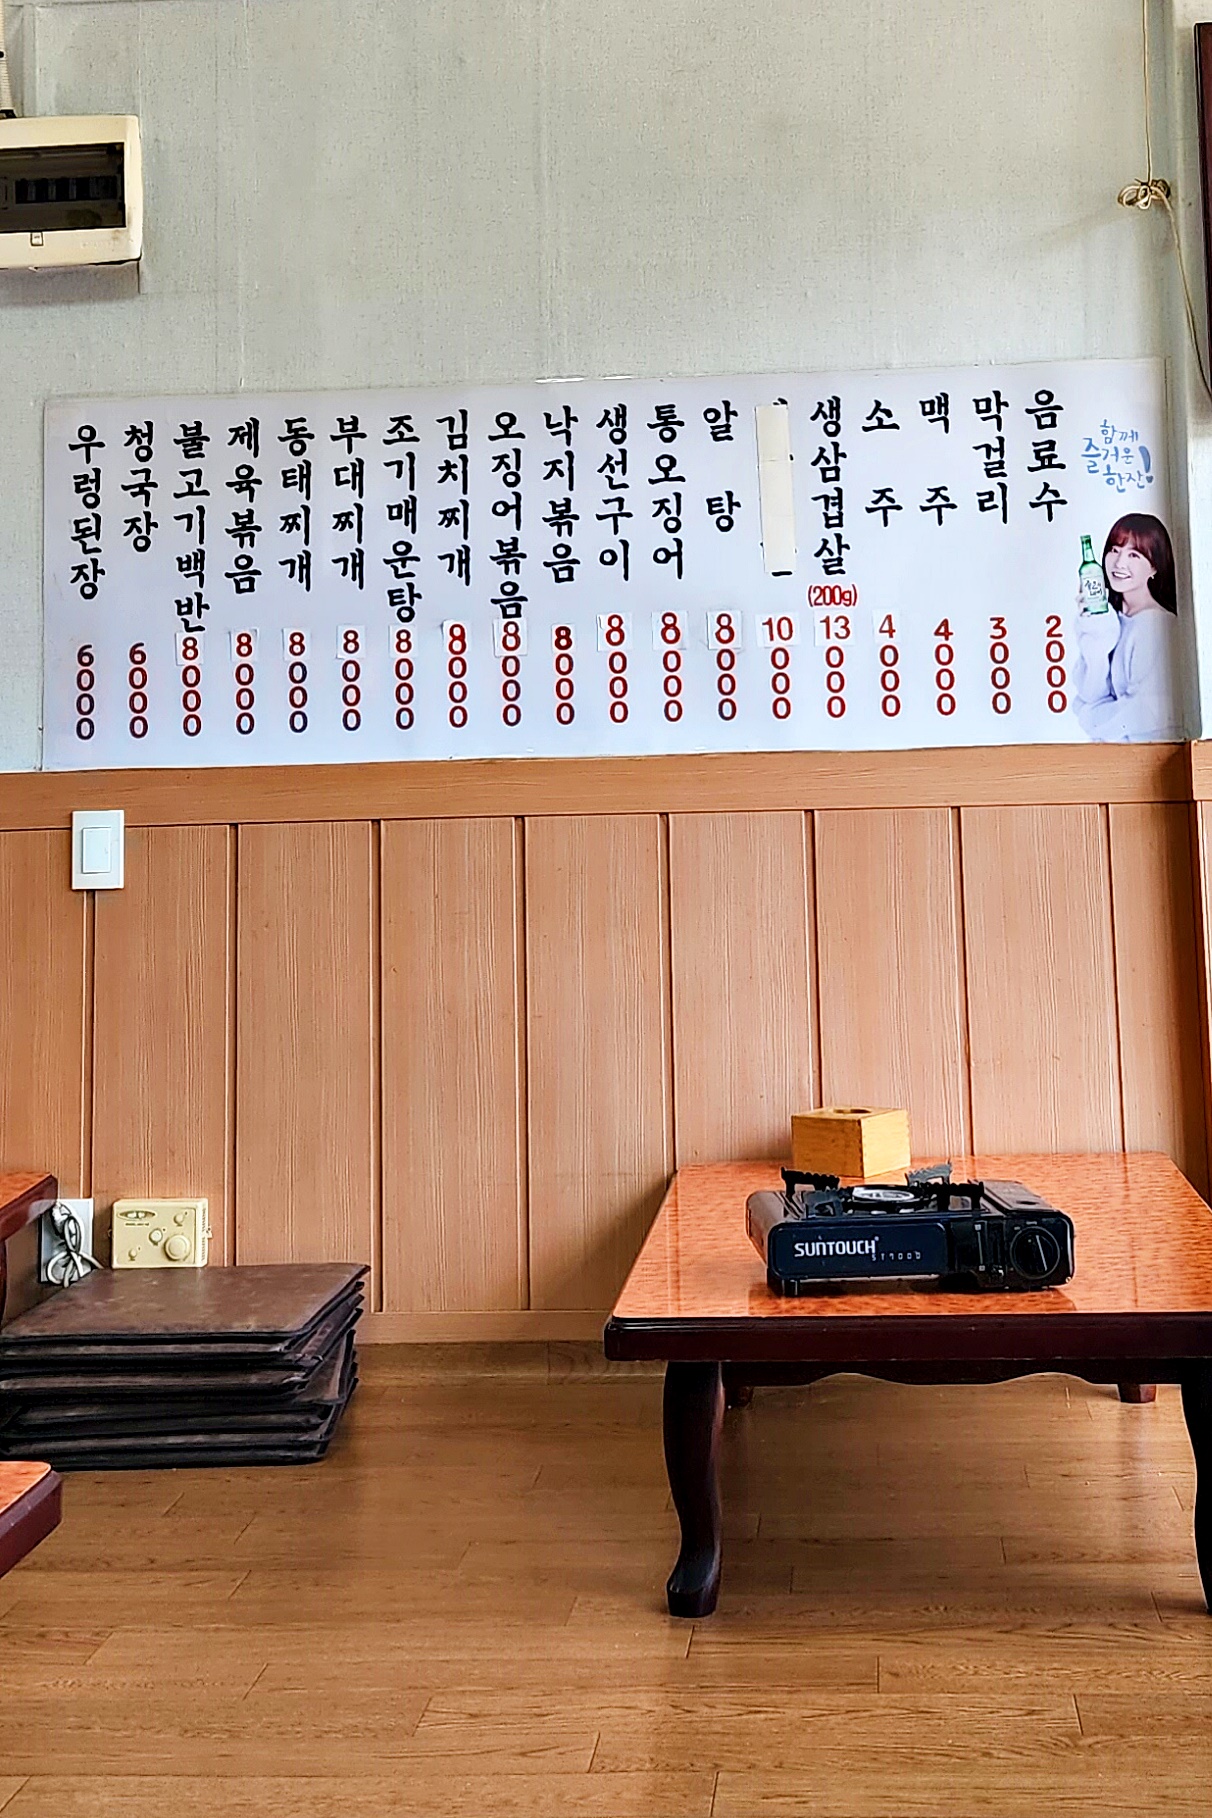 우렁된장 6000
청국장 6000
불고기백반 8000
제육볶음 8000
동태찌개 8000
부대찌개 8000
조기매운탕 8000
김치찌개 8000
오징어볶음 8000
낙지볶음 8000
생선구이 8000
통오징어 8000
알탕 8000
10000
생삼겹살 (200g) 13000
소주 4000
맥주 4000
막걸리 3000
음료수 2000
함께
즐거운
한잔!
SUNTOUCH